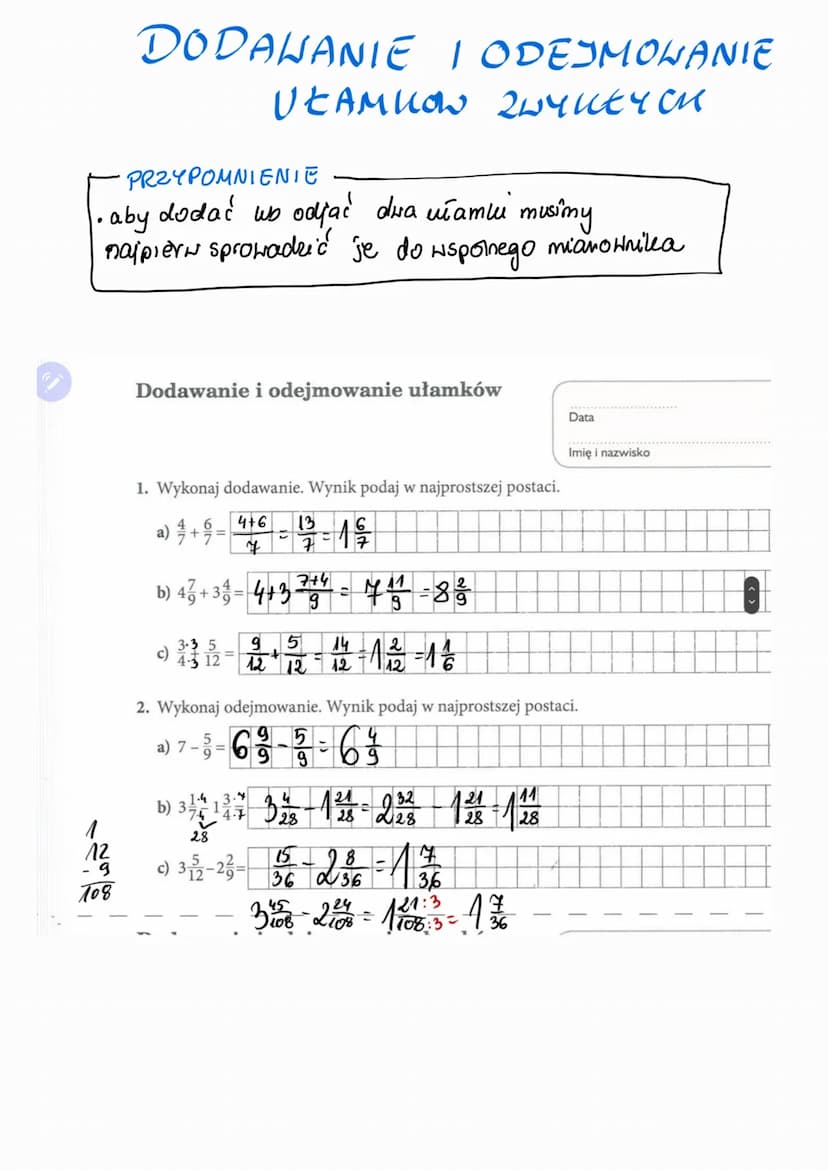 DODAWANIE I ODEJMOWANIE
UŁAMKÓW ZWYKŁYCH
PRZYPOMNIENIE
• aby dodać lub odjąć dwa ułamki musimy
najpierw sprowadzić je do wspólnego mianownika
Dodawanie i odejmowanie ułamków
Data
Imię i nazwisko
1. Wykonaj dodawanie. Wynik podaj w najprostszej postaci.
a) 4/7 + 6/7 = 4+6/7 = 13/7 = 1 6/7
b) 4 7/9 + 3 4/9 = 4+3 7+4/9 = 7 11/9 = 8 2/9
c) 3·3/4·3 + 5/12 = 9/12 + 5/12 = 14/12 = 1 2/12 = 1 1/6
2. Wykonaj odejmowanie. Wynik podaj w najprostszej postaci.
a) 7 − 5/9 = 6 9/9 − 5/9 = 6 4/9
b) 3 1·4/7·4 − 1 3·7/4·7 3 4/28 − 1 21/28 = 2 32/28 − 1 21/28 = 1 11/28
28
c) 3 5/12 − 2 2/9 = 15/36 − 2 8/36 = 1 7/36
3 45/108 − 2 24/108 = 1 21:3/108:3 = 1 7/36
1
12
- 9
108